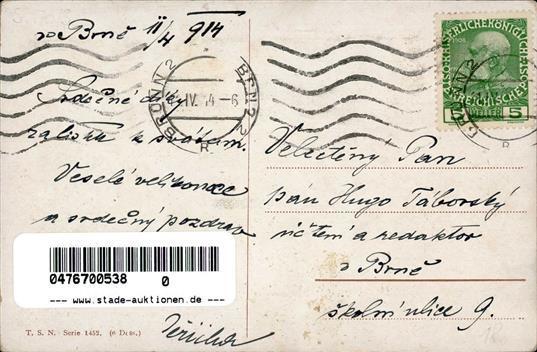 v Brně 11/4 914
BRÜNN 2 BRNO 2
IV. 14-6
Srdečné díky
za lísku k svátkům.
Veselé velikonoce
a srdečný pozdrav
Velectěný Pan
pán Hugo Táborský
učitel a redaktor
v Brně
školní ulice 9.
1908
5 HELLER 5
0476700538 0
--- www.stade-auktionen.de ---
T. S. N. Serie 1452. (6 Dess.)